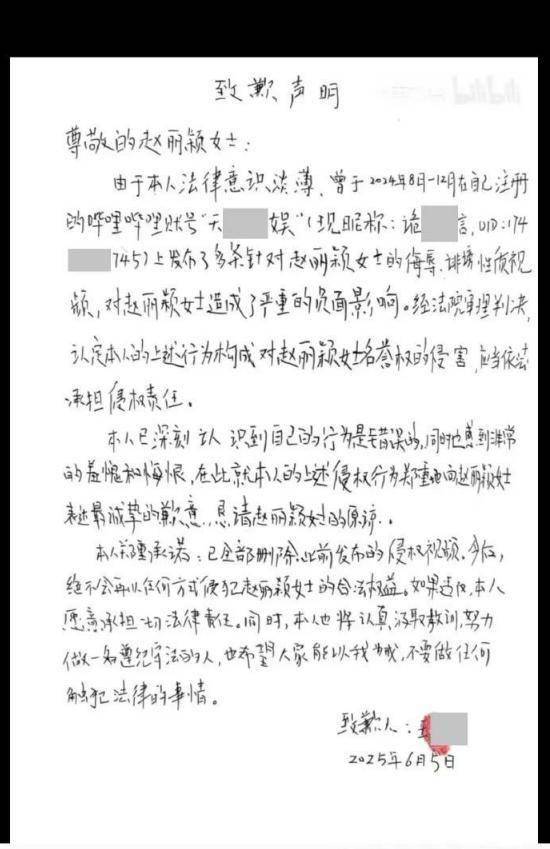 致歉声明
bilibili
尊敬的赵丽颖女士：
由于本人法律意识淡薄，曾于2024年8月-12月在自己注册
的哔哩哔哩账号“天 娱”（现昵称：诡 言，UID：174
745）上发布了多条针对赵丽颖女士的侮辱、诽谤性质视
频，对赵丽颖女士造成了严重的负面影响。经法院审理判决，
认定本人的上述行为构成对赵丽颖女士名誉权的侵害，应当依法
承担侵权责任。
本人已深刻认识到自己的行为是错误的，同时也感到非常
的羞愧和悔恨，在此就本人的上述侵权行为郑重地向赵丽颖女士
表达最诚挚的歉意，恳请赵丽颖女士的原谅．．
本人郑重承诺：已全部删除此前发布的侵权视频。今后，
绝不会再以任何方式侵犯赵丽颖女士的合法权益。如果违反，本人
愿意承担一切法律责任。同时，本人也将认真汲取教训，努力
做一名遵纪守法的人，也希望大家能以我为戒，不要做任何
触犯法律的事情。
致歉人：王
2025年6月5日